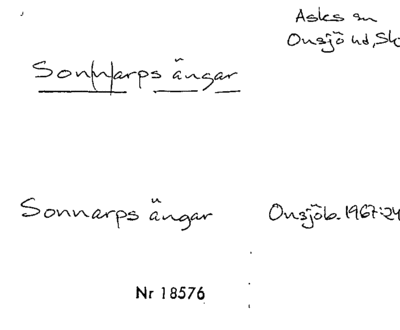 Asks sn
Onsjö hd, Sk
Sonnarps ängar
Sonnarps ängar
Onsjöb. 1967:24
Nr 18576